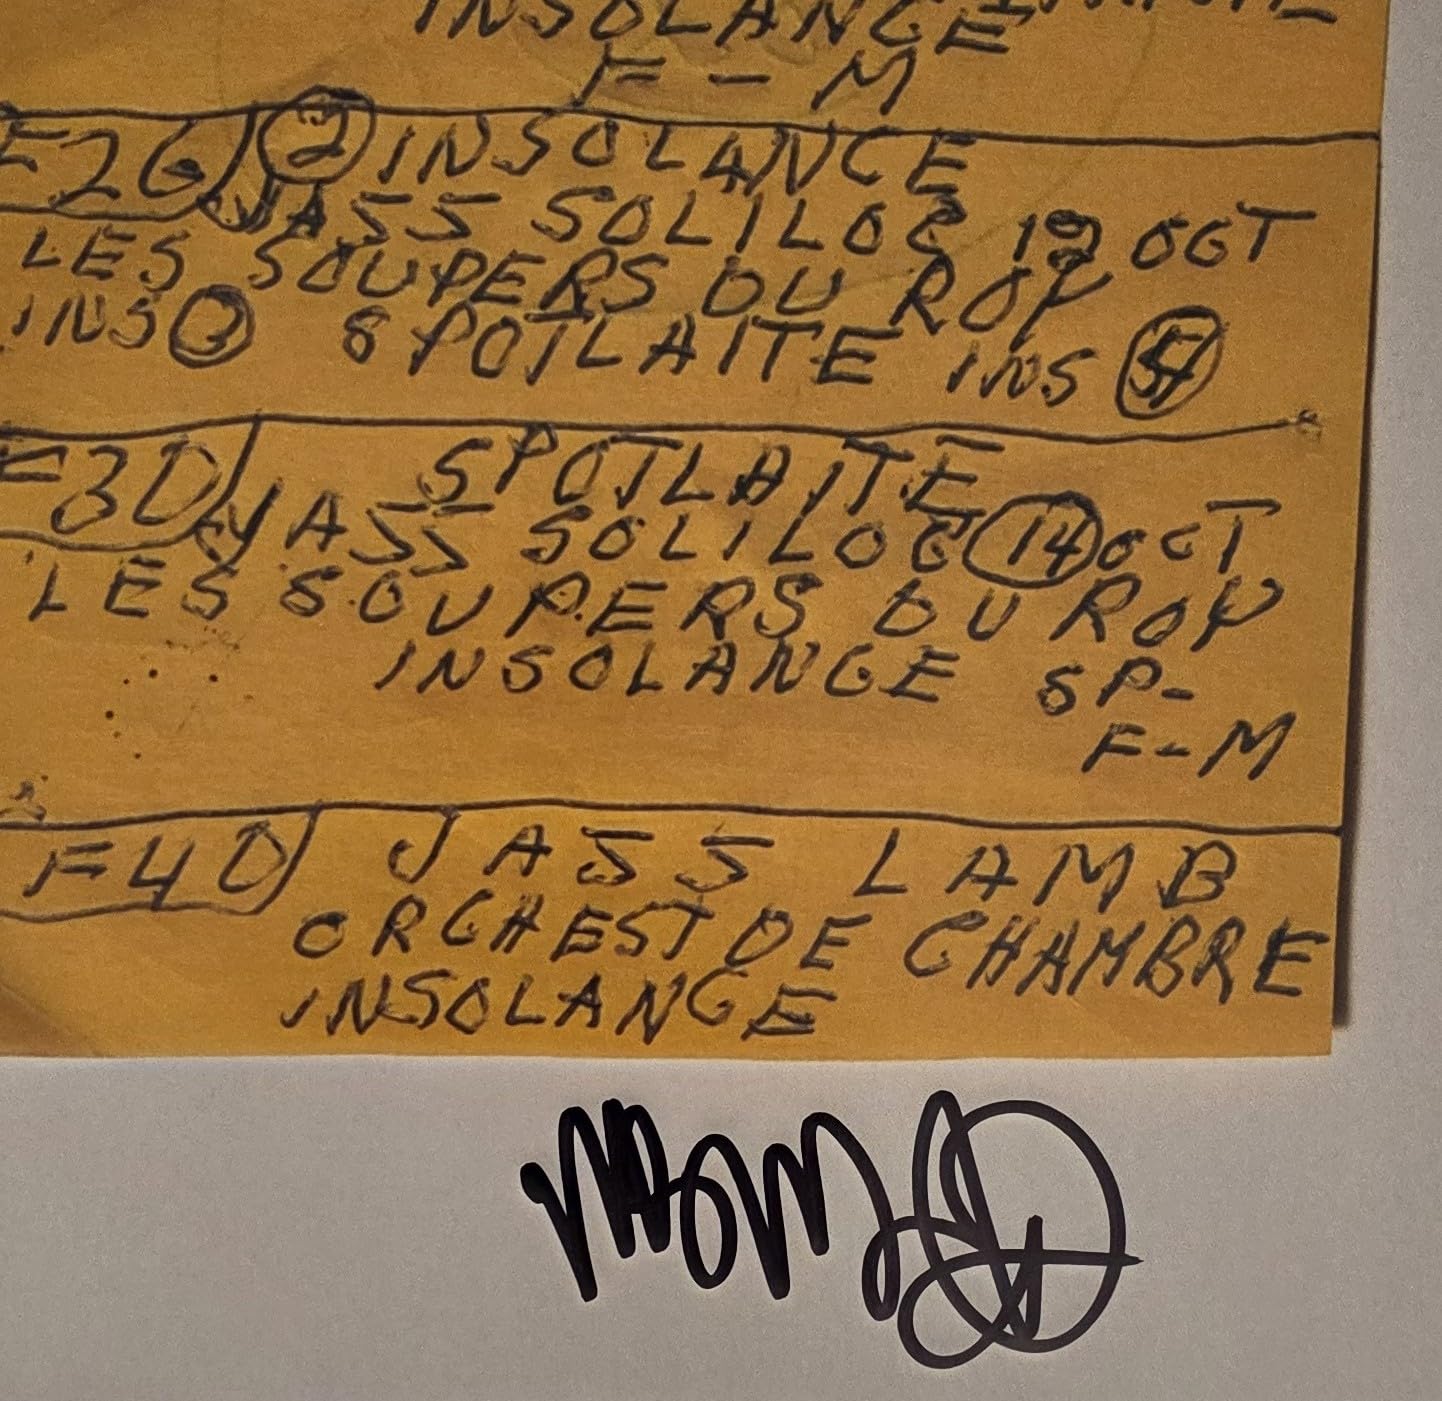 INSOLANGE
F - M
F26 2 INSOLANGE
JASS SOLILOG 12 OCT
LES SOUPERS DU ROY
INS 3 SPOTLAITE INS 54
F30 SPOTLAITE
JASS SOLILOG 14 OCT
LES SOUPERS DU ROY
INSOLANGE SP-
F-M
F40 JASS LAMB
ORCHEST DE CHAMBRE
INSOLANGE